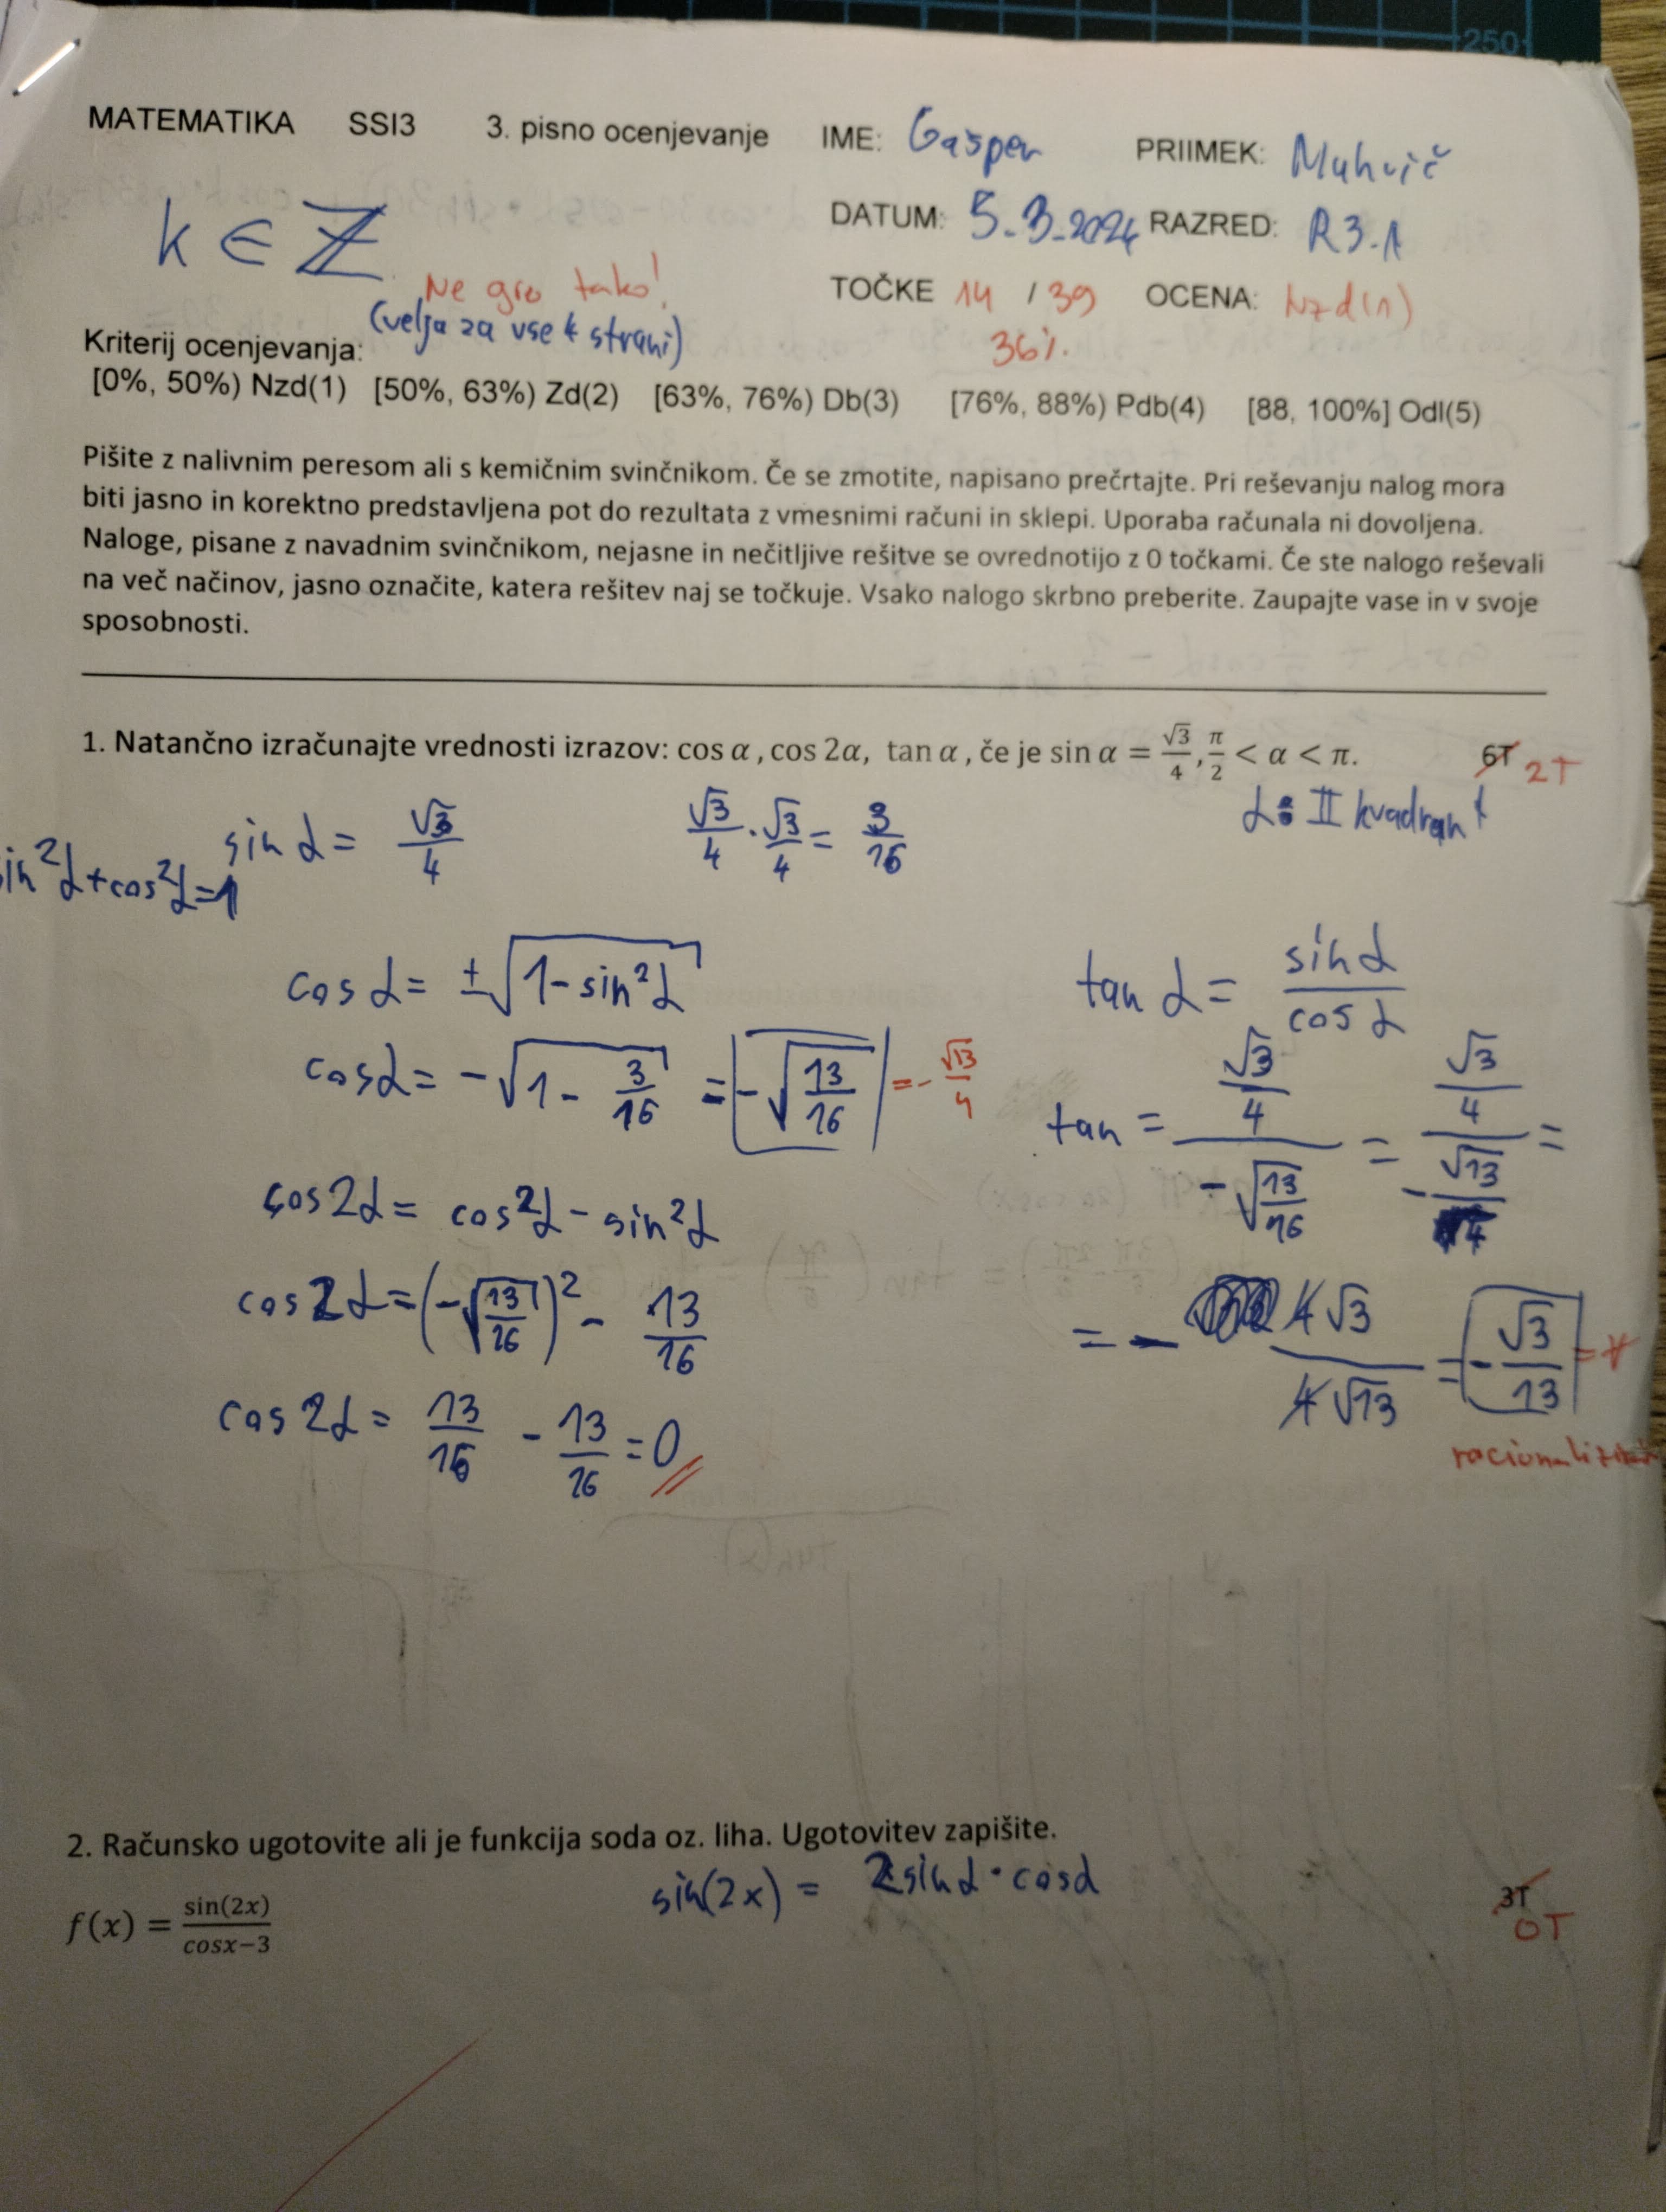 250
MATEMATIKA SSI3 3. pisno ocenjevanje IME: Gašper PRIIMEK: Muhvič
DATUM: 5.3.2024 RAZRED: R3.1
k ∈ ℤ
Ne gre tako!
(velja za vse 4 strani)
TOČKE 14 / 39 OCENA: Nzd(1)
36%
Kriterij ocenjevanja:
[0%, 50%) Nzd(1) [50%, 63%) Zd(2) [63%, 76%) Db(3) [76%, 88%) Pdb(4) [88, 100%] Odl(5)
Pišite z nalivnim peresom ali s kemičnim svinčnikom. Če se zmotite, napisano prečrtajte. Pri reševanju nalog mora
biti jasno in korektno predstavljena pot do rezultata z vmesnimi računi in sklepi. Uporaba računala ni dovoljena.
Naloge, pisane z navadnim svinčnikom, nejasne in nečitljive rešitve se ovrednotijo z 0 točkami. Če ste nalogo reševali
na več načinov, jasno označite, katera rešitev naj se točkuje. Vsako nalogo skrbno preberite. Zaupajte vase in v svoje
sposobnosti.
1. Natančno izračunajte vrednosti izrazov: cos α, cos 2α, tan α, če je sin α = √3/4, π/2 < α < π. 6T 2T
α: II kvadrant
sin α = √3/4
√3/4 · √3/4 = 3/16
in²α + cos²α = 1
cos α = ±√(1 - sin²α)
cos α = -√(1 - 3/16) = -√(13/16) = -√13/4
cos 2α = cos²α - sin²α
cos 2α = (-√(13/16))² - 13/16
cos 2α = 13/16 - 13/16 = 0
tan α = sin α/cos α
tan = (√3/4)/(-√(13/16)) = (√3/4)/(-√13/4) =
= - 4√3/4√13 = -√3/13 =
2. Računsko ugotovite ali je funkcija soda oz. liha. Ugotovitev zapišite.
sin(2x) = 2sin α · cos α
f(x) = sin(2x)/cosx−3
3T 0T